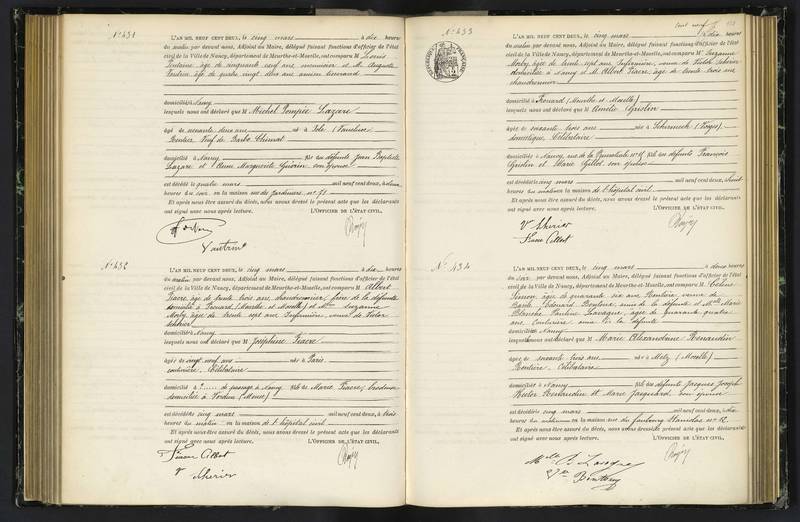 N° 431
L'AN MIL NEUF CENT DEUX, le cinq mars à dix heures
du matin par devant nous, Adjoint au Maire, délégué faisant fonctions d'officier de l'état
civil de la Ville de Nancy, département de Meurthe-et-Moselle, ont comparu M. Louis
âgé de cinquante neuf ans menuisier et M. Auguste
âgé de quatre vingt deux ans ancien
domicilié à Nancy
lesquels nous ont déclaré que M Michel Pompée Lazare
âgé de soixante deux ans né à (Vaucluse)
Rentier, Veuf de
domicilié à Nancy fils des défunts Jean Baptiste
Lazare et Anne Marguerite Guérin, son épouse
est décédé le quatre mars mil neuf cent deux, à
heures du soir en la maison rue des Jardiniers n° 71
Et après nous être assuré du décès, nous avons dressé le présent acte que les déclarants
ont signé avec nous après lecture. L'OFFICIER DE L'ÉTAT CIVIL,
Vautrin
N° 432
L'AN MIL NEUF CENT DEUX, le cinq mars à dix heures
du matin par devant nous, Adjoint au Maire, délégué faisant fonctions d'officier de l'état
civil de la Ville de Nancy, département de Meurthe-et-Moselle, ont comparu M. Albert
Fiacre, âgé de trente trois ans, chaudronnier, frère de la défunte
domicilié à Frouard (Meurthe et Moselle) et Mme Suzanne
Morby, âgée de trente sept ans Infirmière, veuve de Victor
domiciliée à Nancy
lesquels nous ont déclaré que M Joséphine Fiacre
âgée de vingt neuf ans née à Paris
couturière, Célibataire
domiciliée à ?..... de passage à Nancy fille de Marie Fiacre, brodeuse
domiciliée à Verdun (Meuse)
est décédée le cinq mars mil neuf cent deux, à trois
heures du matin en la maison de l'hôpital civil
Et après nous être assuré du décès, nous avons dressé le présent acte que les déclarants
ont signé avec nous après lecture. L'OFFICIER DE L'ÉTAT CIVIL,
Fiacre Albert
N° 433
L'AN MIL NEUF CENT DEUX, le cinq mars à dix heures
du matin par devant nous, Adjoint au Maire, délégué faisant fonctions d'officier de l'état
civil de la Ville de Nancy, département de Meurthe-et-Moselle, ont comparu M Suzanne
Morby, âgée de trente sept ans, Infirmière, veuve de Victor
domiciliée à Nancy et M. Albert Fiacre, âgé de trente trois ans
chaudronnier
domicilié à Frouard (Meurthe et Moselle)
lesquels nous ont déclaré que M Amélie
âgée de soixante trois ans née à Schirmeck (Vosges)
domestique, Célibataire
domiciliée à Nancy, rue de la Primatiale n° fille des défunts François
et Marie Gillot, son épouse
est décédée le cinq mars mil neuf cent deux, à huit
heures du matin en la maison de l'hôpital civil
Et après nous être assuré du décès, nous avons dressé le présent acte que les déclarants
ont signé avec nous après lecture. L'OFFICIER DE L'ÉTAT CIVIL,
Fiacre Albert
N° 434
L'AN MIL NEUF CENT DEUX, le cinq mars à deux heures
du soir par devant nous, Adjoint au Maire, délégué faisant fonctions d'officier de l'état
civil de la Ville de Nancy, département de Meurthe-et-Moselle, ont comparu M Céline
Simon, âgée de quarante six ans Rentière, veuve de
Édouard amie de la défunte et Mlle Marie
Blanche Pauline Lavagne, âgée de quarante quatre
ans, Couturière amie de la défunte
domiciliées à Nancy
lesquelles nous ont déclaré que M Marie Alexandrine Renaudin
âgée de soixante trois ans née à Metz (Moselle)
Rentière Célibataire
domiciliée à Nancy fille des défunts Jacques Joseph
Renaudin et Marie Jacquard, son épouse
est décédée le cinq mars mil neuf cent deux, à dix
heures du matin en la maison rue du faubourg Stanislas n° 12
Et après nous être assuré du décès, nous avons dressé le présent acte que les déclarants
ont signé avec nous après lecture. L'OFFICIER DE L'ÉTAT CIVIL,